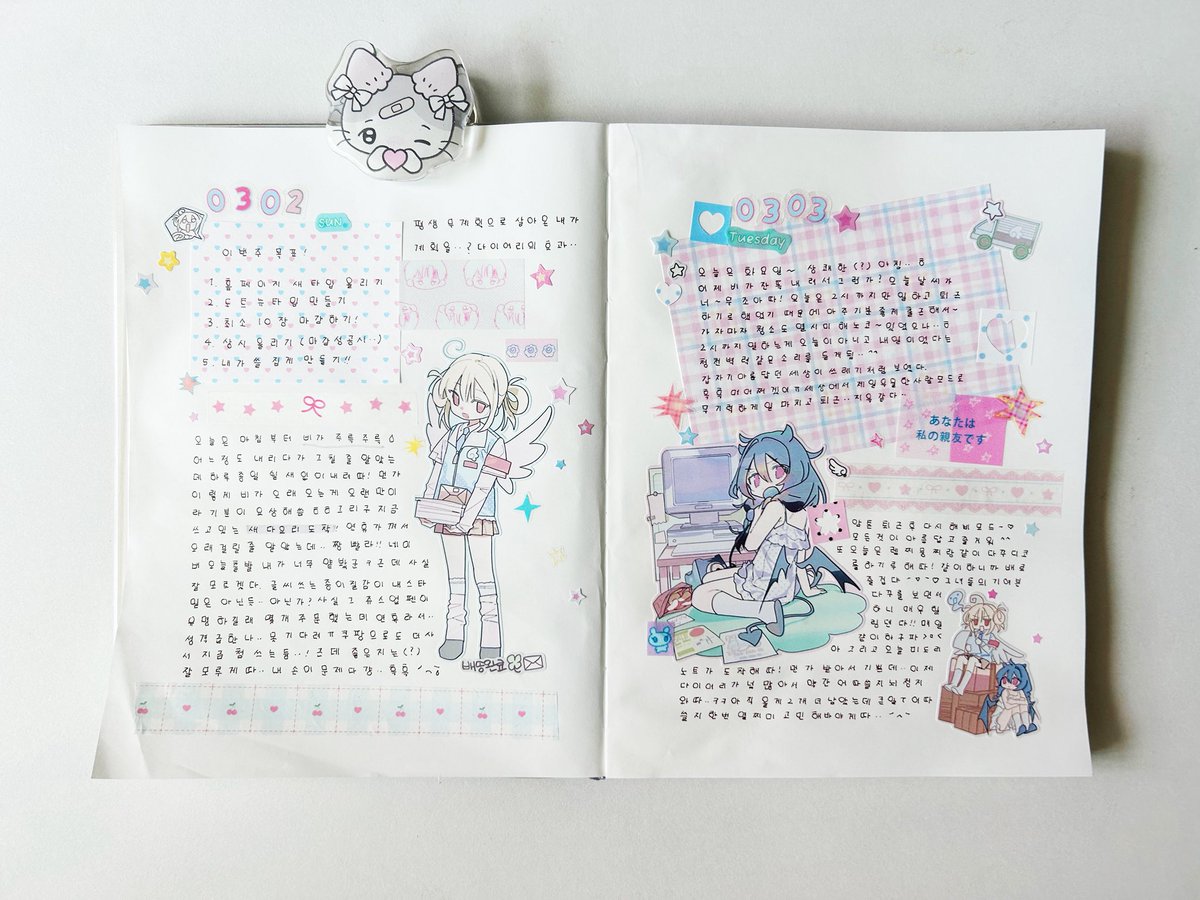 0302
SUN.
평생 무계획으로 살아온 내가
계획을..? 다이어리의 효과..
이번주 목표!
1. 홈페이지 새 타입 올리기
2. 도트는타입 만들기
3. 최소 10장 마감하기!
4. 상시 올리기 (마감성공시..)
5. 내가 쓸 짐계 만들기!!
오늘은 아침부터 비가 주륵주륵
어느정도 내리다가 그칠줄 알았는
데 하루종일 쉴 새없이 내려따! 먼가
이렇게 비가 오래 오는게 오랜만이
라 기분이 요상해씀 ㅎㅎ 그리구 지금
쓰고있는 새 다요리 도착!! 연휴가껴서
오래걸릴줄 알았는데.. 짱 빨라!! 네이
버 오늘출발 내가 너무 얕봤군ㅋ 근데 사실
잘 모르겟다. 글씨쓰는 종이질감이 내 스타
일은 아닌듯.. 아닌가? 사실 그 쥬스업 펜이
유명하길래 몇개 주문했는데 연휴라서..
성격급한나.. 못기다려ㅠ 쿠팡으로도 더 사
서 지금 첨 쓰는듕..! 근데 좋은지는(?)
잘 모루게따.. 내 손이 문제다걍.. 흑흑
배송완료
0303
Tuesday
오늘은 화요일~ 상쾌한(?) 아침..ㅎ
어제 비가 잔뜩 내려서 그런가? 오늘 날씨가
너~무 조아따! 오늘은 2시까지만 일하고 퇴근
하기로 했었기 때문에 아주 기분좋게 출근해서~
가자마자 청소도 열시미 해놓고~ 있었으나..ㅎ
2시까지 일하는게 오늘이 아니고 내일이었다는
청천벽력같은 소리를 듣게됨..^^
갑자기 아름답던 세상이 쓰레기처럼 보였다.
흑흑 머 어쩌겟어ㅠ 세상에서 제일 우울한 사람 모드로
무기력하게 일 마치고 퇴근.. 지옥같다..
あなたは
私の親友です
암튼 퇴근후 다시 해삐모드~♡
모든것이 아름답고 즐거워 ^^
또 오늘은 렌찌몽찌랑 같이 다꾸 디코
를 하기루 해따! 같이하니까 배로
즐겁다 ^♡^♡ 그녀들의 기여븐
다꾸를 보면서
하니 매우힐
링된다!! 매일
같이 하구파 >o<
아 그리고 오늘 미도리
노트가 도착해따! 먼가 받아서 기쁘데.. 이제
다이어리가 넘 많아서 약간 어떠쓸지 뇌정지
와따..ㅋㅋ 아직 올게 2개 더 남았는데 큰일ㅜ 어따
쓸지 한번 열찌미 고민해바야게따..^~^